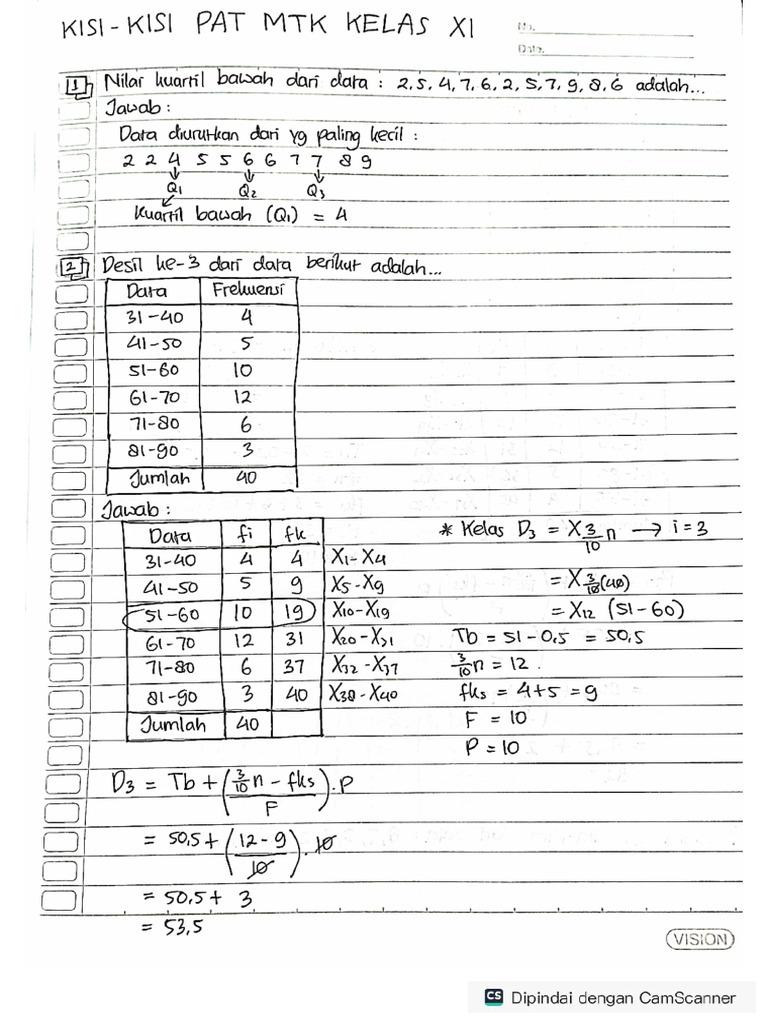 KISI-KISI PAT MTK KELAS XI
No.
Date.
1 Nilai kuartil bawah dari data : 2,5,4,7,6,2,5,7,9,8,6 adalah...
Jawab :
Data diurutkan dari yg paling kecil :
2 2 4 5 5 6 6 7 7 8 9
Q1 Q2 Q3
Kuartil bawah (Q1) = 4
2 Desil ke-3 dari data berikut adalah...
Data Frekuensi
31-40 4
41-50 5
51-60 10
61-70 12
71-80 6
81-90 3
Jumlah 40
Jawab :
Data fi fk
31-40 4 4 X1-X4
41-50 5 9 X5-X9
51-60 10 19 X10-X19
61-70 12 31 X20-X31
71-80 6 37 X32-X37
81-90 3 40 X38-X40
Jumlah 40
* Kelas D3 = X 3/10 n → i = 3
= X 3/10 (40)
= X12 (51-60)
Tb = 51 - 0,5 = 50,5
3/10 n = 12.
fks = 4+5 = 9
F = 10
P = 10
D3 = Tb + (3/10 n - fks / F) . P
= 50,5 + (12 - 9 / 10) . 10
= 50,5 + 3
= 53,5
VISION
CS Dipindai dengan CamScanner